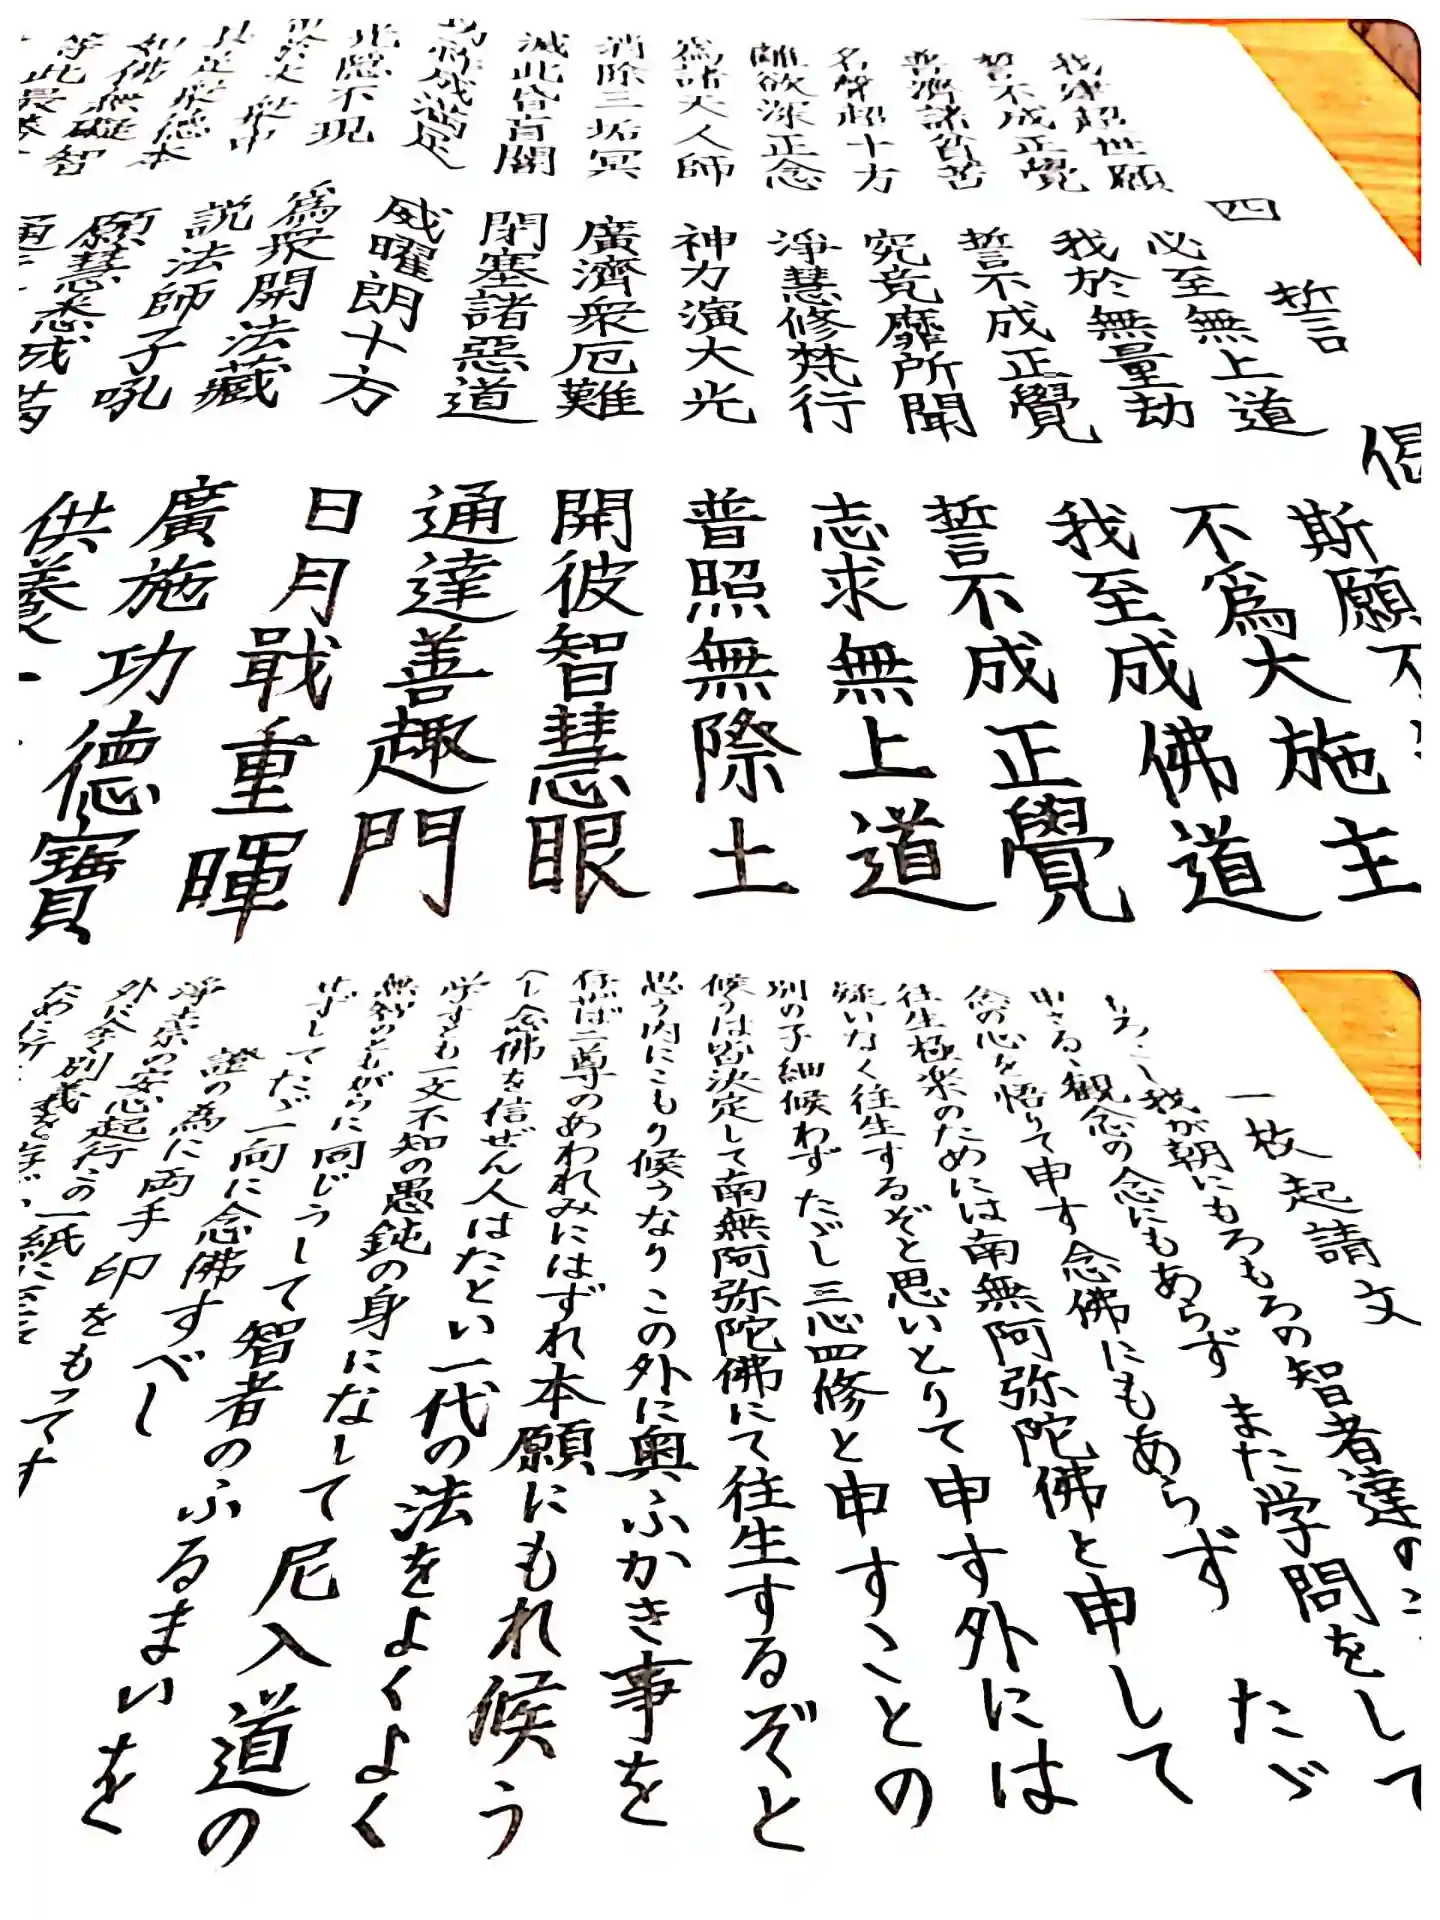 四誓偈
我建超世願 必至無上道 斯願不
誓不成正覺 我於無量劫 不爲大施主
普濟諸貧苦 誓不成正覺 我至成佛道
名聲超十方 究竟靡所聞 誓不成正覺
離欲深正念 淨慧修梵行 志求無上道
爲諸天人師 神力演大光 普照無際土
消除三垢冥 廣濟衆厄難 開彼智慧眼
滅此昏盲闇 閉塞諸惡道 通達善趣門
功祚成満足 威曜朗十方 日月戢重暉
光隠不現 爲衆開法藏 廣施功德寶
大衆中 説法師子吼 供養一
具足衆德本 願慧悉成満
如佛無礙智 通
等此最
一枚起請文
もろこし我が朝にもろもろの智者達の
申さるゝ観念の念にもあらず また学問をして
念の心を悟りて申す念佛にもあらず たゞ
往生極楽のためには南無阿弥陀佛と申して
疑いなく往生するぞと思いとりて申す外には
別の子細候わず たゞし三心四修と申すことの
候うは皆決定して南無阿弥陀佛にて往生するぞと
思う内にこもり候うなり この外に奥ふかき事を
存ぜば二尊のあわれみにはずれ本願にもれ候う
べし念佛を信ぜん人はたとい一代の法をよくよく
学すとも一文不知の愚鈍の身になして 尼入道の
無智のともがらに同じうして 智者のふるまいを
せずしてたゞ一向に念佛すべし
證の為に両手印をもってす
浄土宗の安心起行この一紙に至
外に全く別義を存ぜ